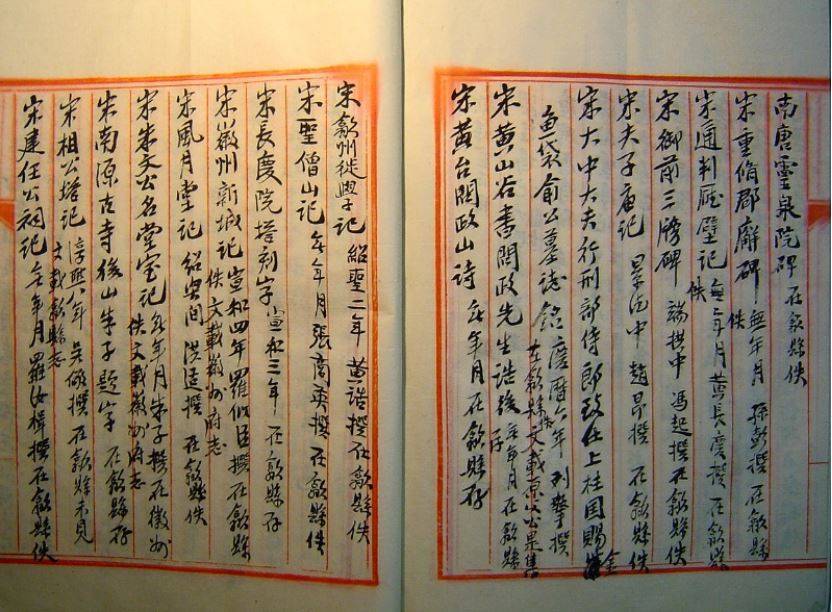 南唐靈泉院碑 在歙縣佚
宋重脩郡廨碑 無年月 孫彭撰 在歙縣佚
宋通判廳壁記 無年月 黃長度撰 在歙縣佚
宋御前三牓碑 端拱中 馮起撰 在歙縣佚
宋夫子庙記 景德中 趙昂撰 在歙縣佚
宋大中大夫行刑部侍郎致仕上柱國賜金
魚袋俞公墓誌銘 慶曆六年 列摯撰 在歙縣 文載
宋黃山谷書問政先生誥後 無年月 在歙縣存
宋黃台問政山诗 無年月 在歙縣存
宋歙州徙學記 紹聖二年 黃誥撰 在歙縣佚
宋聖僧山記 無年月 張商英撰 在歙縣佚
宋長慶院塔刻字 宣和三年 在歙縣存
宋徽州新城記 宣和四年 羅似臣撰 在歙縣佚 文載徽州府志
宋風月堂記 紹興間 洪适撰 在歙縣佚
宋朱文公名堂室記 無年月 朱子撰 在徽州佚 文載徽州府志
宋南源古寺後山朱子題字 在歙縣存
宋相公塔記 淳熙八年 吳儆撰 在歙縣未見 文載歙縣志
宋建任公祠記 無年月 羅汝楫撰 在歙縣佚